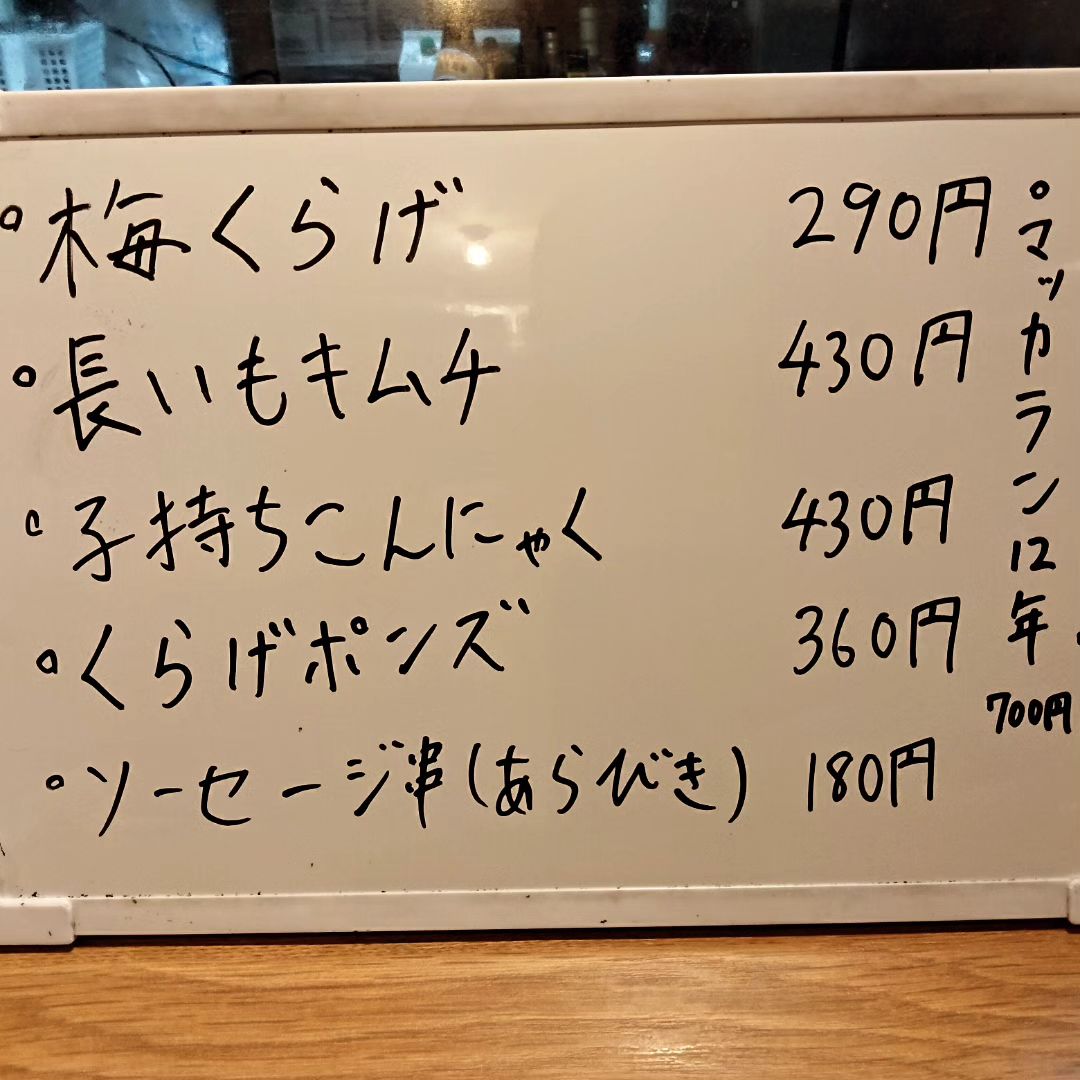 梅くらげ 290円
長いもキムチ 430円
子持ちこんにゃく 430円
くらげポンズ 360円
ソーセージ串(あらびき) 180円
マッカラン12年
700円